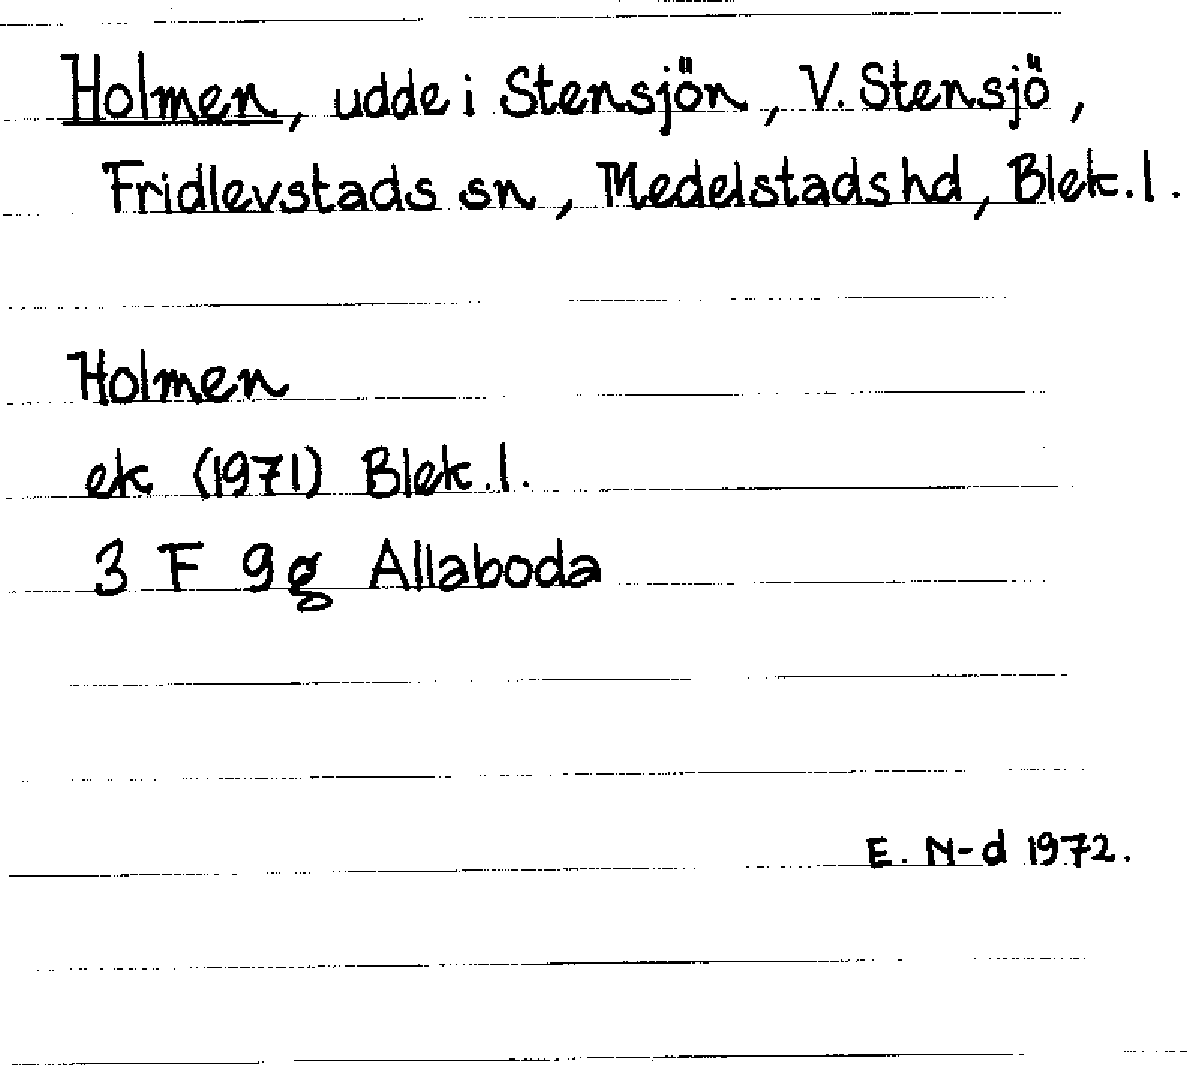 Holmen, udde i Stensjön, V. Stensjö,
Fridlevstads sn, Medelstads hd, Blek. l.
Holmen
ek (1971) Blek. l.
3 F 9 g Allaboda
E. N-d 1972.